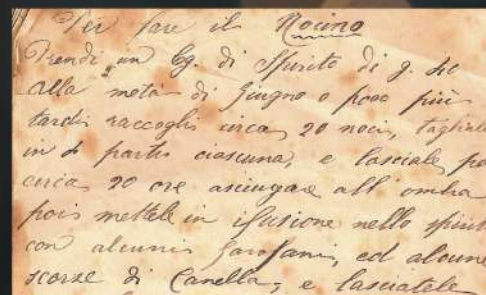 Per fare il Nocino
Prendi un Cg. di Spirito di g.
alla metà di giugno o poco più
tardi raccogli circa 20 noci, tagliale
in 4 parti ciascuna, e lasciale
circa 20 ore asciugare all'ombra
poi mettele in ifusione nello
con alcuni garofani, ed alcune
scorze di Canella, e lasciatele